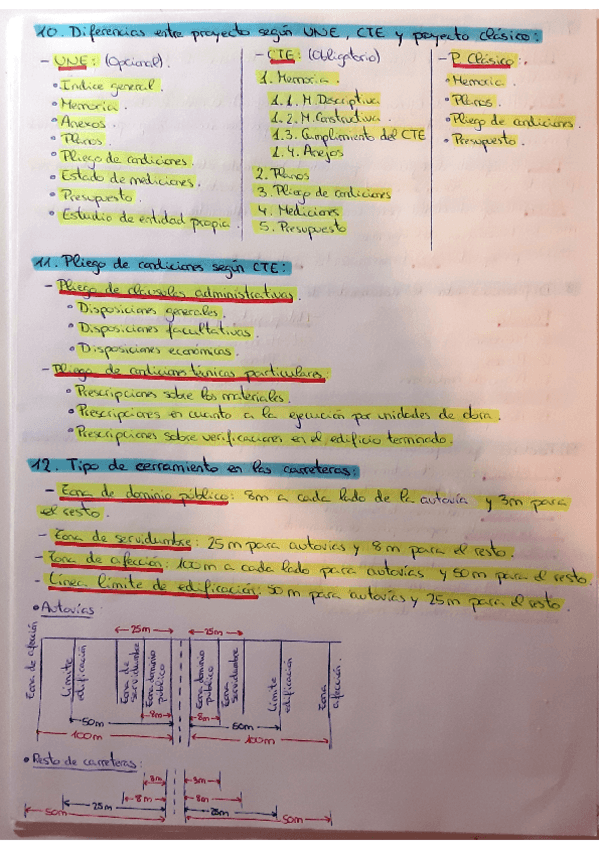 10. Diferencias entre proyecto según UNE, CTE y proyecto clásico:
- UNE: (Opcional).
• Índice general.
• Memoria.
• Anexos.
• Planos.
• Pliego de condiciones.
• Estado de mediciones.
• Presupuesto.
• Estudio de entidad propia.
- CTE: (Obligatorio)
1. Memoria.
1.1. M. Descriptiva
1.2. M. Constructiva.
1.3. Cumplimiento del CTE
1.4. Anejos
2. Planos
3. Pliego de condiciones
4. Mediciones
5. Presupuesto
- P. Clásico:
• Memoria.
• Planos.
• Pliego de condiciones.
• Presupuesto.
11. Pliego de condiciones según CTE:
- Pliego de cláusulas administrativas.
• Disposiciones generales.
• Disposiciones facultativas.
• Disposiciones económicas.
- Pliego de condiciones técnicas particulares:
• Prescripciones sobre los materiales.
• Prescripciones en cuanto a la ejecución por unidades de obra.
• Prescripciones sobre verificaciones en el edificio terminado.
12. Tipo de cerramiento en las carreteras:
- Zona de dominio público: 8m a cada lado de la autovía y 3m para
el resto.
- Zona de servidumbre: 25m para autovías y 8m para el resto.
- Zona de afección: 100m a cada lado para autovías y 50m para el resto.
- Línea límite de edificación: 50m para autovías y 25m para el resto.
• Autovías:
25m
25m
Zona de afección
Límite edificación
Zona de servidumbre
Zona dominio público
Zona dominio público
Zona servidumbre
Límite edificación
Zona afección.
8m
8m
50m
50m
100m
100m
• Resto de carreteras:
3m
3m
8m
8m
25m
25m
50m
50m